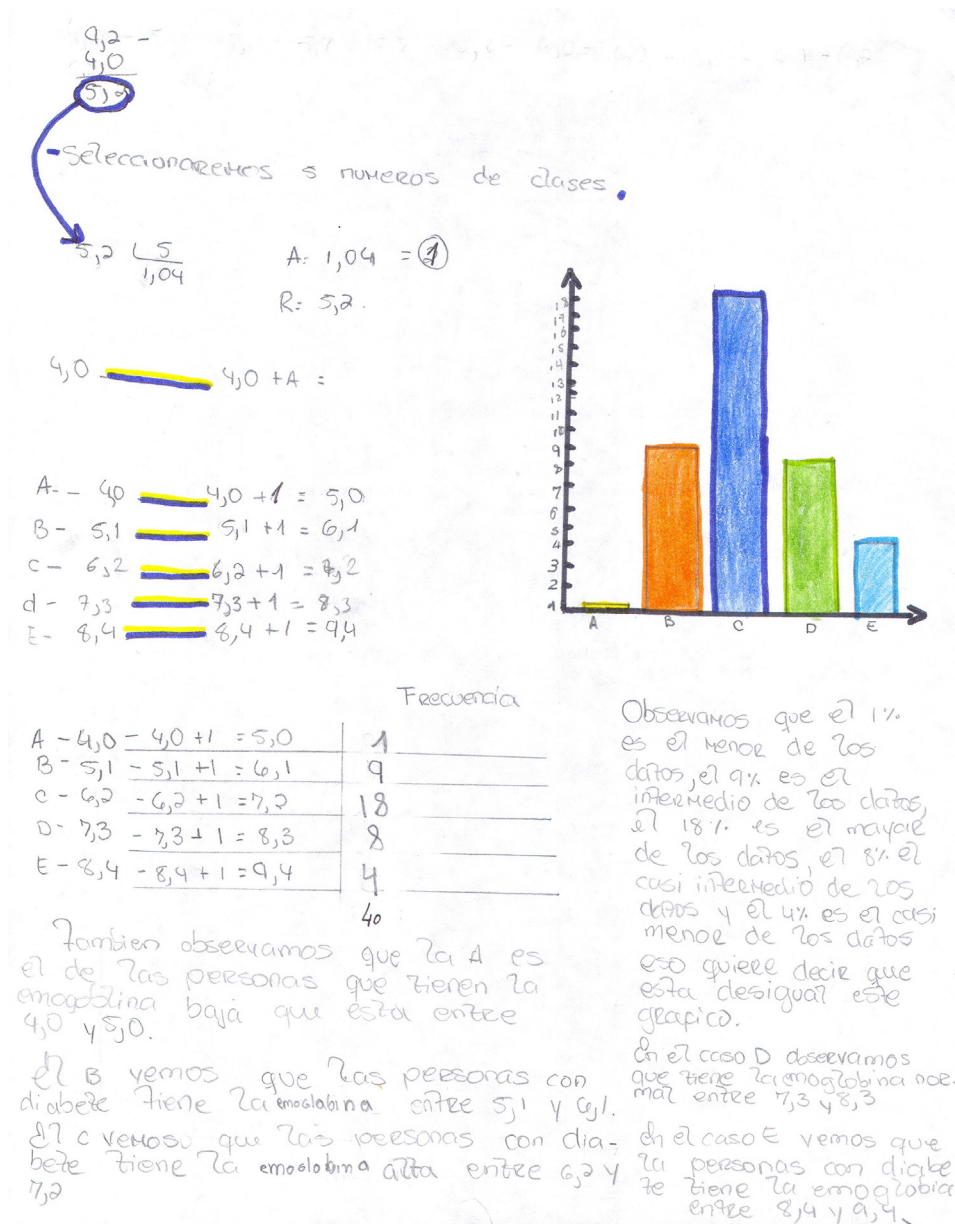 9,2 -
4,0
5,2
- Seleccionaremos 5 numeros de clases.
5,2 5
1,04
A: 1,04 = 1
R: 5,2.
4,0 4,0 + A =
A- - 4,0 4,0 + 1 = 5,0
B - 5,1 5,1 + 1 = 6,1
C - 6,2 6,2 + 1 = 7,2
d - 7,3 7,3 + 1 = 8,3
E - 8,4 8,4 + 1 = 9,4
18
17
16
15
14
13
12
11
10
9
8
7
6
5
4
3
2
1
A B C D E
Frecuencia
A - 4,0 - 4,0 + 1 = 5,0 1
B - 5,1 - 5,1 + 1 = 6,1 9
C - 6,2 - 6,2 + 1 = 7,2 18
D - 7,3 - 7,3 + 1 = 8,3 8
E - 8,4 - 8,4 + 1 = 9,4 4
40
Tombien observamos que la A es
el de las personas que tienen la
emogoblina baja que esta entre
4,0 y 5,0.
El B vemos que las personas con
diabete tiene la emoglabina entre 5,1 y 6,1.
El C vemos que las personas con dia-
bete tiene la emoglobina alta entre 6,2 y
7,2
Observamos que el 1%
es el menor de los
datos, el 9% es el
intermedio de los datos,
el 18% es el mayar
de los datos, el 8% el
casi intermedio de los
datos y el 4% es el casi
menor de los datos
eso quiere decir que
esta desigual este
grafico.
En el caso D observamos
que tiene la emoglobina nor-
mal entre 7,3 y 8,3
En el caso E vemos que
la personas con diabe
te tiene la emoglobia
entre 8,4 y 9,4.